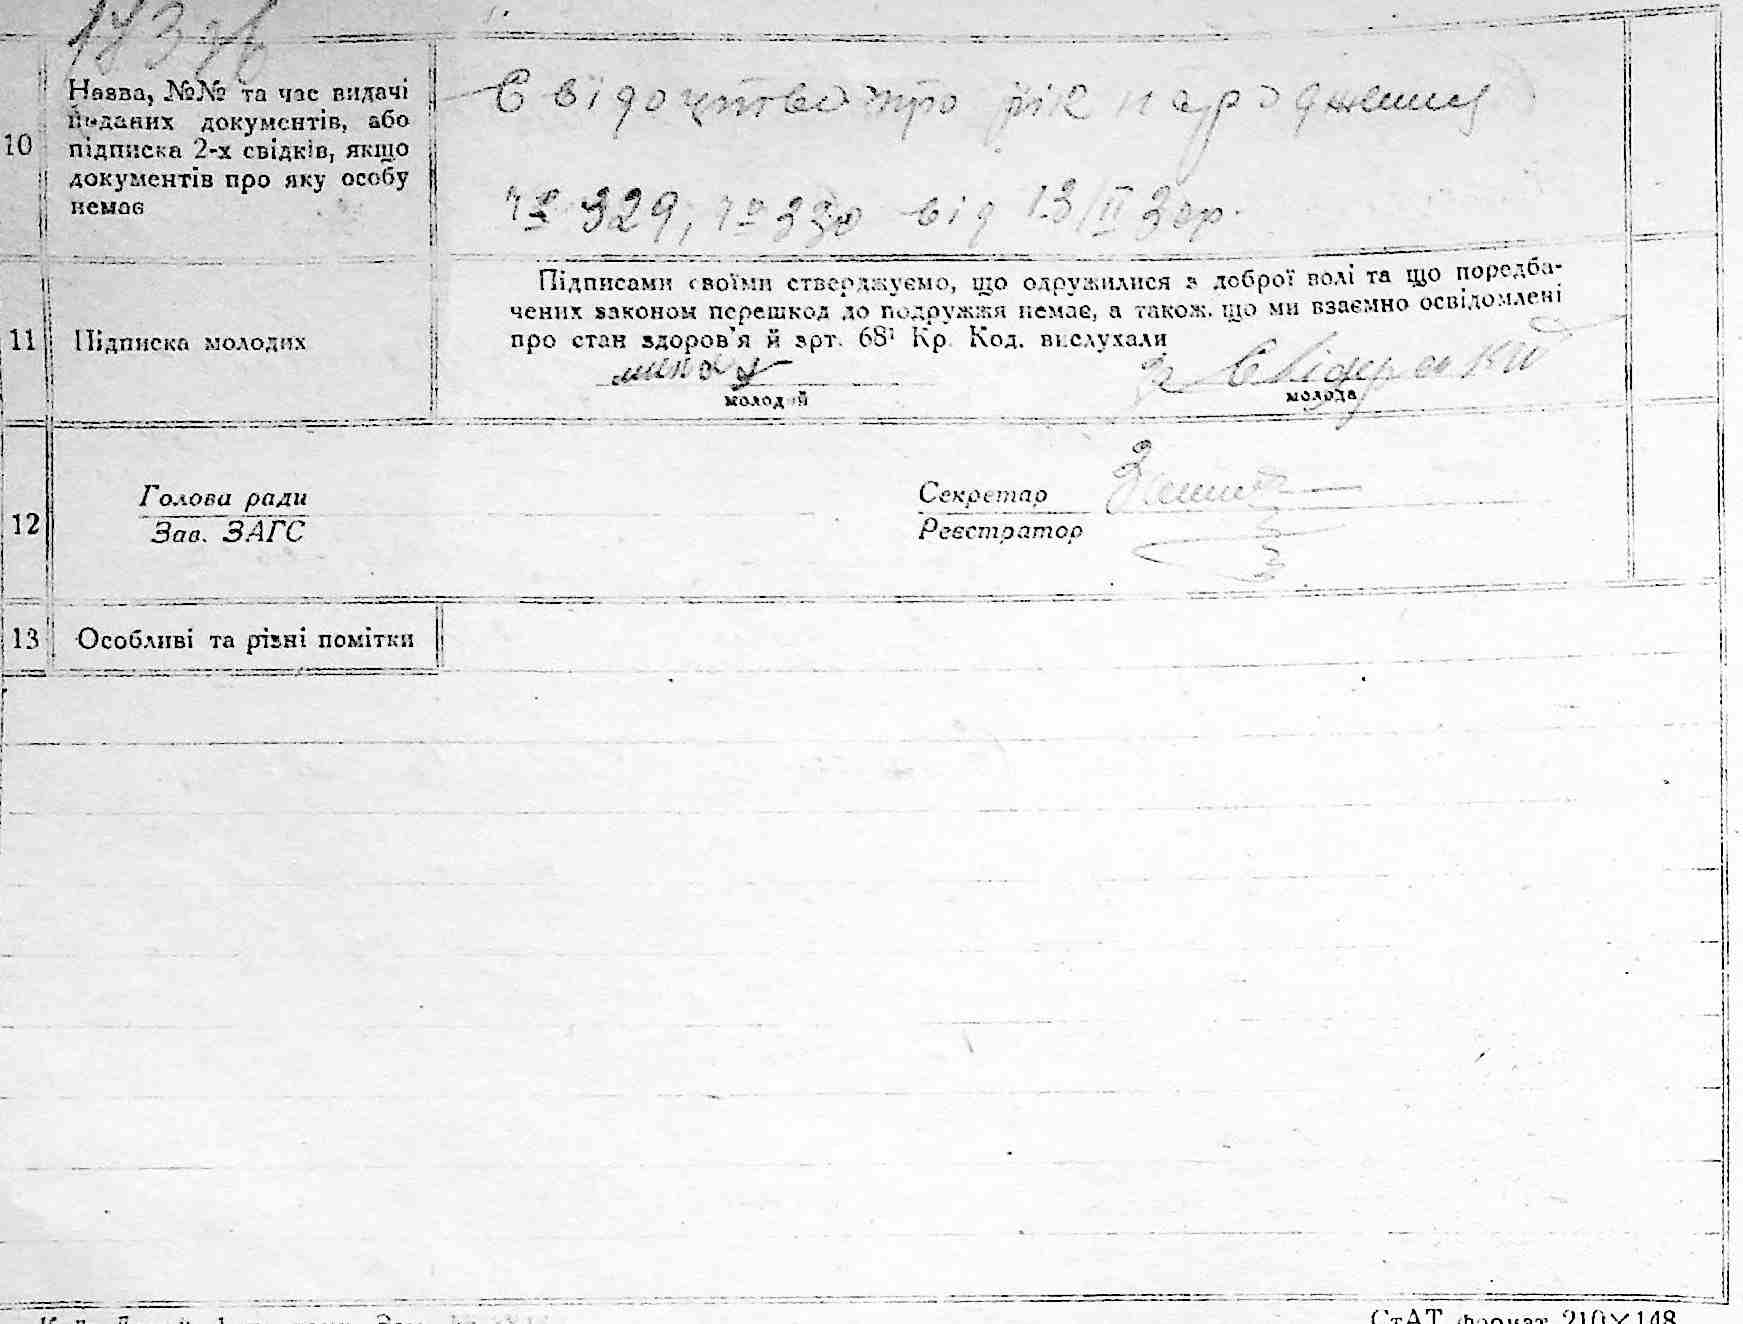 Назва, №№ та час видачі
поданих документів, або
10 підписка 2-х свідків, якщо
документів про яку особу
немає
Свідоцтво про рік народження
№ 329, № 330 від 13/II 30р.
Підписами своїми стверджуємо, що одружилися з доброї волі та що поредба-
чених законом перешкод до подружжя немає, а також, що ми взаємно освідомлені
11 Підписка молодих
про стан здоров'я й арт. 68¹ Кр. Код. вислухали
молодий
молода
12
Голова ради
Зав. ЗАГС
Секретар
Реєстратор
13 Особливі та різні помітки
СтАТ формат 210×148